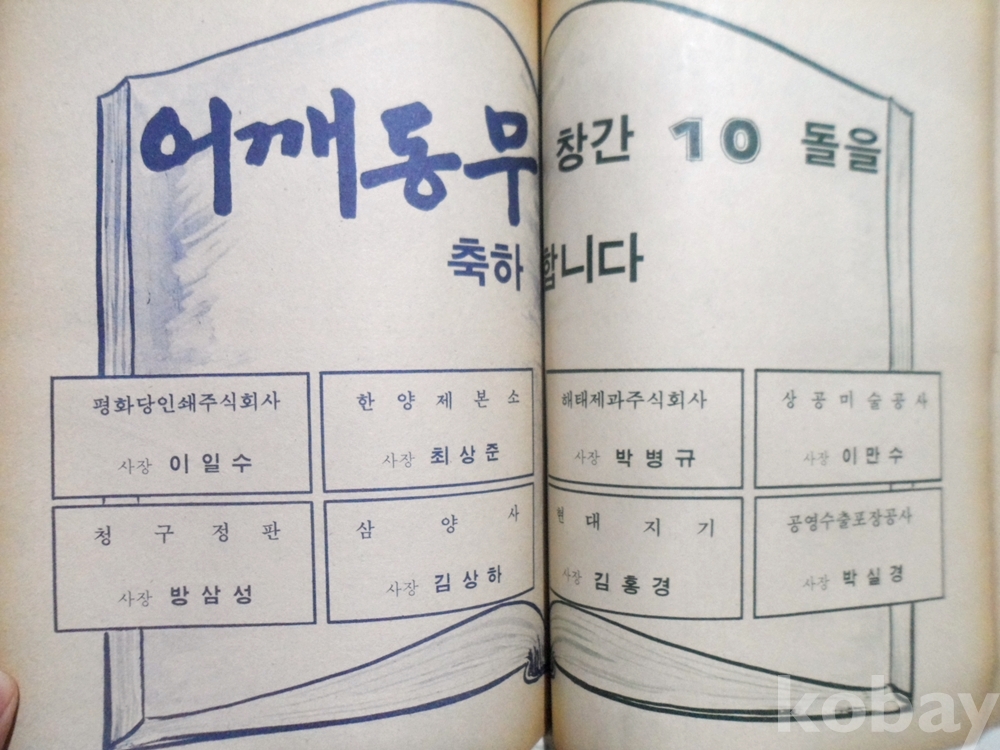 어깨동무 창간 10 돌을
축하합니다
평화당인쇄주식회사
사장 이일수
한양제본소
사장 최상준
해태제과주식회사
사장 박병규
상공미술공사
사장 이만수
청구정판
사장 방삼성
삼양사
사장 김상하
현대지기
사장 김홍경
공영수출포장공사
사장 박실경
kobay